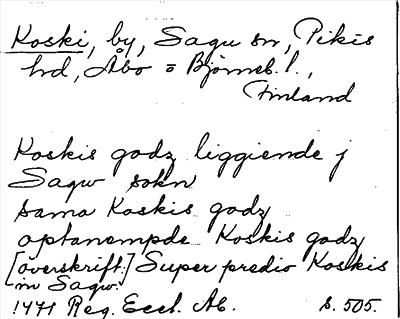 Koski, by, Sagu sn, Pikis
hd, Åbo = Björneb. l.,
Finland
Koskis godz liggiende j
Sagw sokn
sama Koskis godz
optanempde Koskis godz
[överskrift:] Super predio Koskis
in Sagw.
1471 Reg. Eccl. Ab. s. 505.